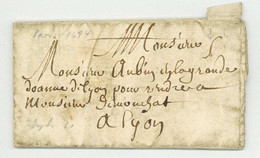 Monsieur
Monsieur Aubin de la grande
doanne d'lyon pour rendre a
Monsieur demonchat
a lyon